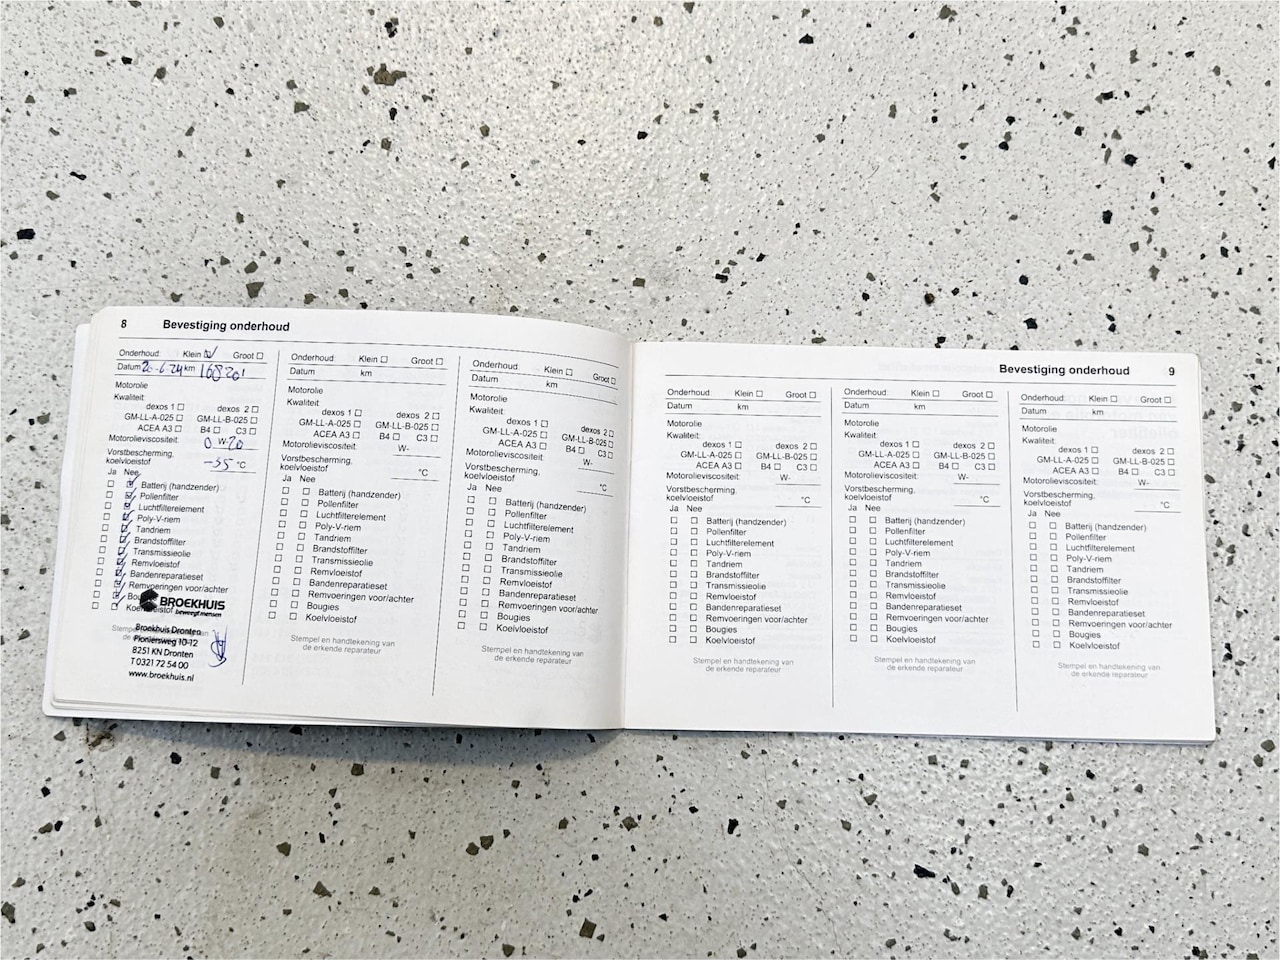 8 Bevestiging onderhoud
Onderhoud: Klein Groot
Datum 20-6-24 km 168201
Motorolie
Kwaliteit:
dexos 1 dexos 2
GM-LL-A-025 GM-LL-B-025
ACEA A3 B4 C3
Motorolieviscositeit: 0 W- 20
Vorstbescherming,
koelvloeistof -35 °C
Ja Nee
Batterij (handzender)
Pollenfilter
Luchtfilterelement
Poly-V-riem
Tandriem
Brandstoffilter
Transmissieolie
Remvloeistof
Bandenreparatieset
Remvoeringen voor/achter
BROEKHUIS
beweegt mensen
Broekhuis Dronten
Pioniersweg 10-12
8251 KN Dronten
T 0321 72 54 00
www.broekhuis.nl
Onderhoud: Klein Groot
Datum km
Motorolie
Kwaliteit:
dexos 1 dexos 2
GM-LL-A-025 GM-LL-B-025
ACEA A3 B4 C3
Motorolieviscositeit: W-
Vorstbescherming,
koelvloeistof °C
Ja Nee
Batterij (handzender)
Pollenfilter
Luchtfilterelement
Poly-V-riem
Tandriem
Brandstoffilter
Transmissieolie
Remvloeistof
Bandenreparatieset
Remvoeringen voor/achter
Bougies
Koelvloeistof
Stempel en handtekening van
de erkende reparateur
Onderhoud: Klein Groot
Datum km
Motorolie
Kwaliteit:
dexos 1 dexos 2
GM-LL-A-025 GM-LL-B-025
ACEA A3 B4 C3
Motorolieviscositeit: W-
Vorstbescherming,
koelvloeistof °C
Ja Nee
Batterij (handzender)
Pollenfilter
Luchtfilterelement
Poly-V-riem
Tandriem
Brandstoffilter
Transmissieolie
Remvloeistof
Bandenreparatieset
Remvoeringen voor/achter
Bougies
Koelvloeistof
Stempel en handtekening van
de erkende reparateur
Bevestiging onderhoud 9
Onderhoud: Klein Groot
Datum km
Motorolie
Kwaliteit:
dexos 1 dexos 2
GM-LL-A-025 GM-LL-B-025
ACEA A3 B4 C3
Motorolieviscositeit: W-
Vorstbescherming,
koelvloeistof °C
Ja Nee
Batterij (handzender)
Pollenfilter
Luchtfilterelement
Poly-V-riem
Tandriem
Brandstoffilter
Transmissieolie
Remvloeistof
Bandenreparatieset
Remvoeringen voor/achter
Bougies
Koelvloeistof
Stempel en handtekening van
de erkende reparateur
Onderhoud: Klein Groot
Datum km
Motorolie
Kwaliteit:
dexos 1 dexos 2
GM-LL-A-025 GM-LL-B-025
ACEA A3 B4 C3
Motorolieviscositeit: W-
Vorstbescherming,
koelvloeistof °C
Ja Nee
Batterij (handzender)
Pollenfilter
Luchtfilterelement
Poly-V-riem
Tandriem
Brandstoffilter
Transmissieolie
Remvloeistof
Bandenreparatieset
Remvoeringen voor/achter
Bougies
Koelvloeistof
Stempel en handtekening van
de erkende reparateur
Onderhoud: Klein Groot
Datum km
Motorolie
Kwaliteit:
dexos 1 dexos 2
GM-LL-A-025 GM-LL-B-025
ACEA A3 B4 C3
Motorolieviscositeit: W-
Vorstbescherming,
koelvloeistof °C
Ja Nee
Batterij (handzender)
Pollenfilter
Luchtfilterelement
Poly-V-riem
Tandriem
Brandstoffilter
Transmissieolie
Remvloeistof
Bandenreparatieset
Remvoeringen voor/achter
Bougies
Koelvloeistof
Stempel en handtekening van
de erkende reparateur